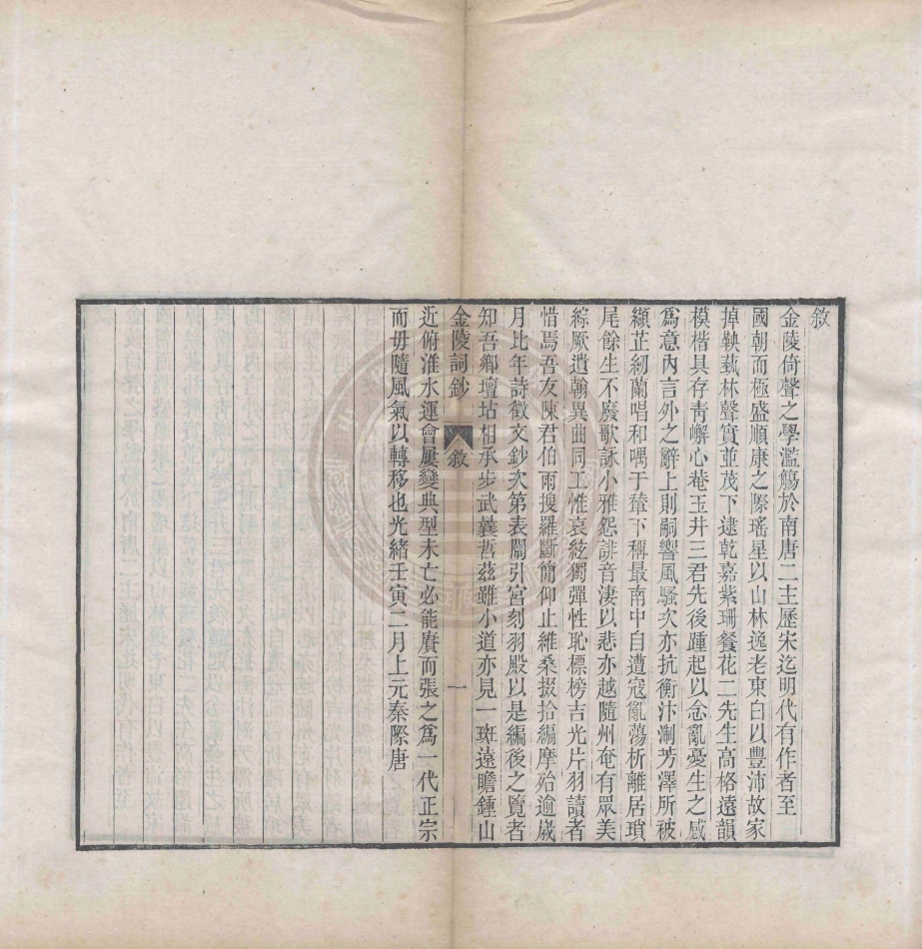 敘
金陵倚聲之學濫觴於南唐二主歷宋迄明代有作者至
國朝而極盛順康之際瑤星以山林逸老東白以豐沛故家
掉鞅蓺林聲實並茂下逮乾嘉紫珊餐花二先生高格遠韻
模楷具存青嶰心菴玉井三君先後踵起以念亂憂生之感
爲意內言外之辭上則嗣響風騷次亦抗衡汴淛芳澤所被
纈芷紉蘭唱和喁于輂下稱最南中自遭寇亂蕩析離居瑣
尾餘生不廢歌詠小雅怨誹音淒以悲亦越隨州奄有眾美
綜厥遺翰異曲同工惟哀絃獨彈性恥標榜吉光片羽讀者
惜焉吾友陳君伯雨搜羅斷簡仰止維桑掇拾編摩殆逾歲
月比年詩徵文鈔次第表闡引宮刻羽殿以是編後之覽者
知吾鄉壇坫相承步武曩哲茲雖小道亦見一斑遠瞻鍾山
金陵詞鈔 敘 一
近俯淮水運會屢變典型未亡必能賡而張之爲一代正宗
而毋隨風氣以轉移也光緒壬寅二月上元秦際唐